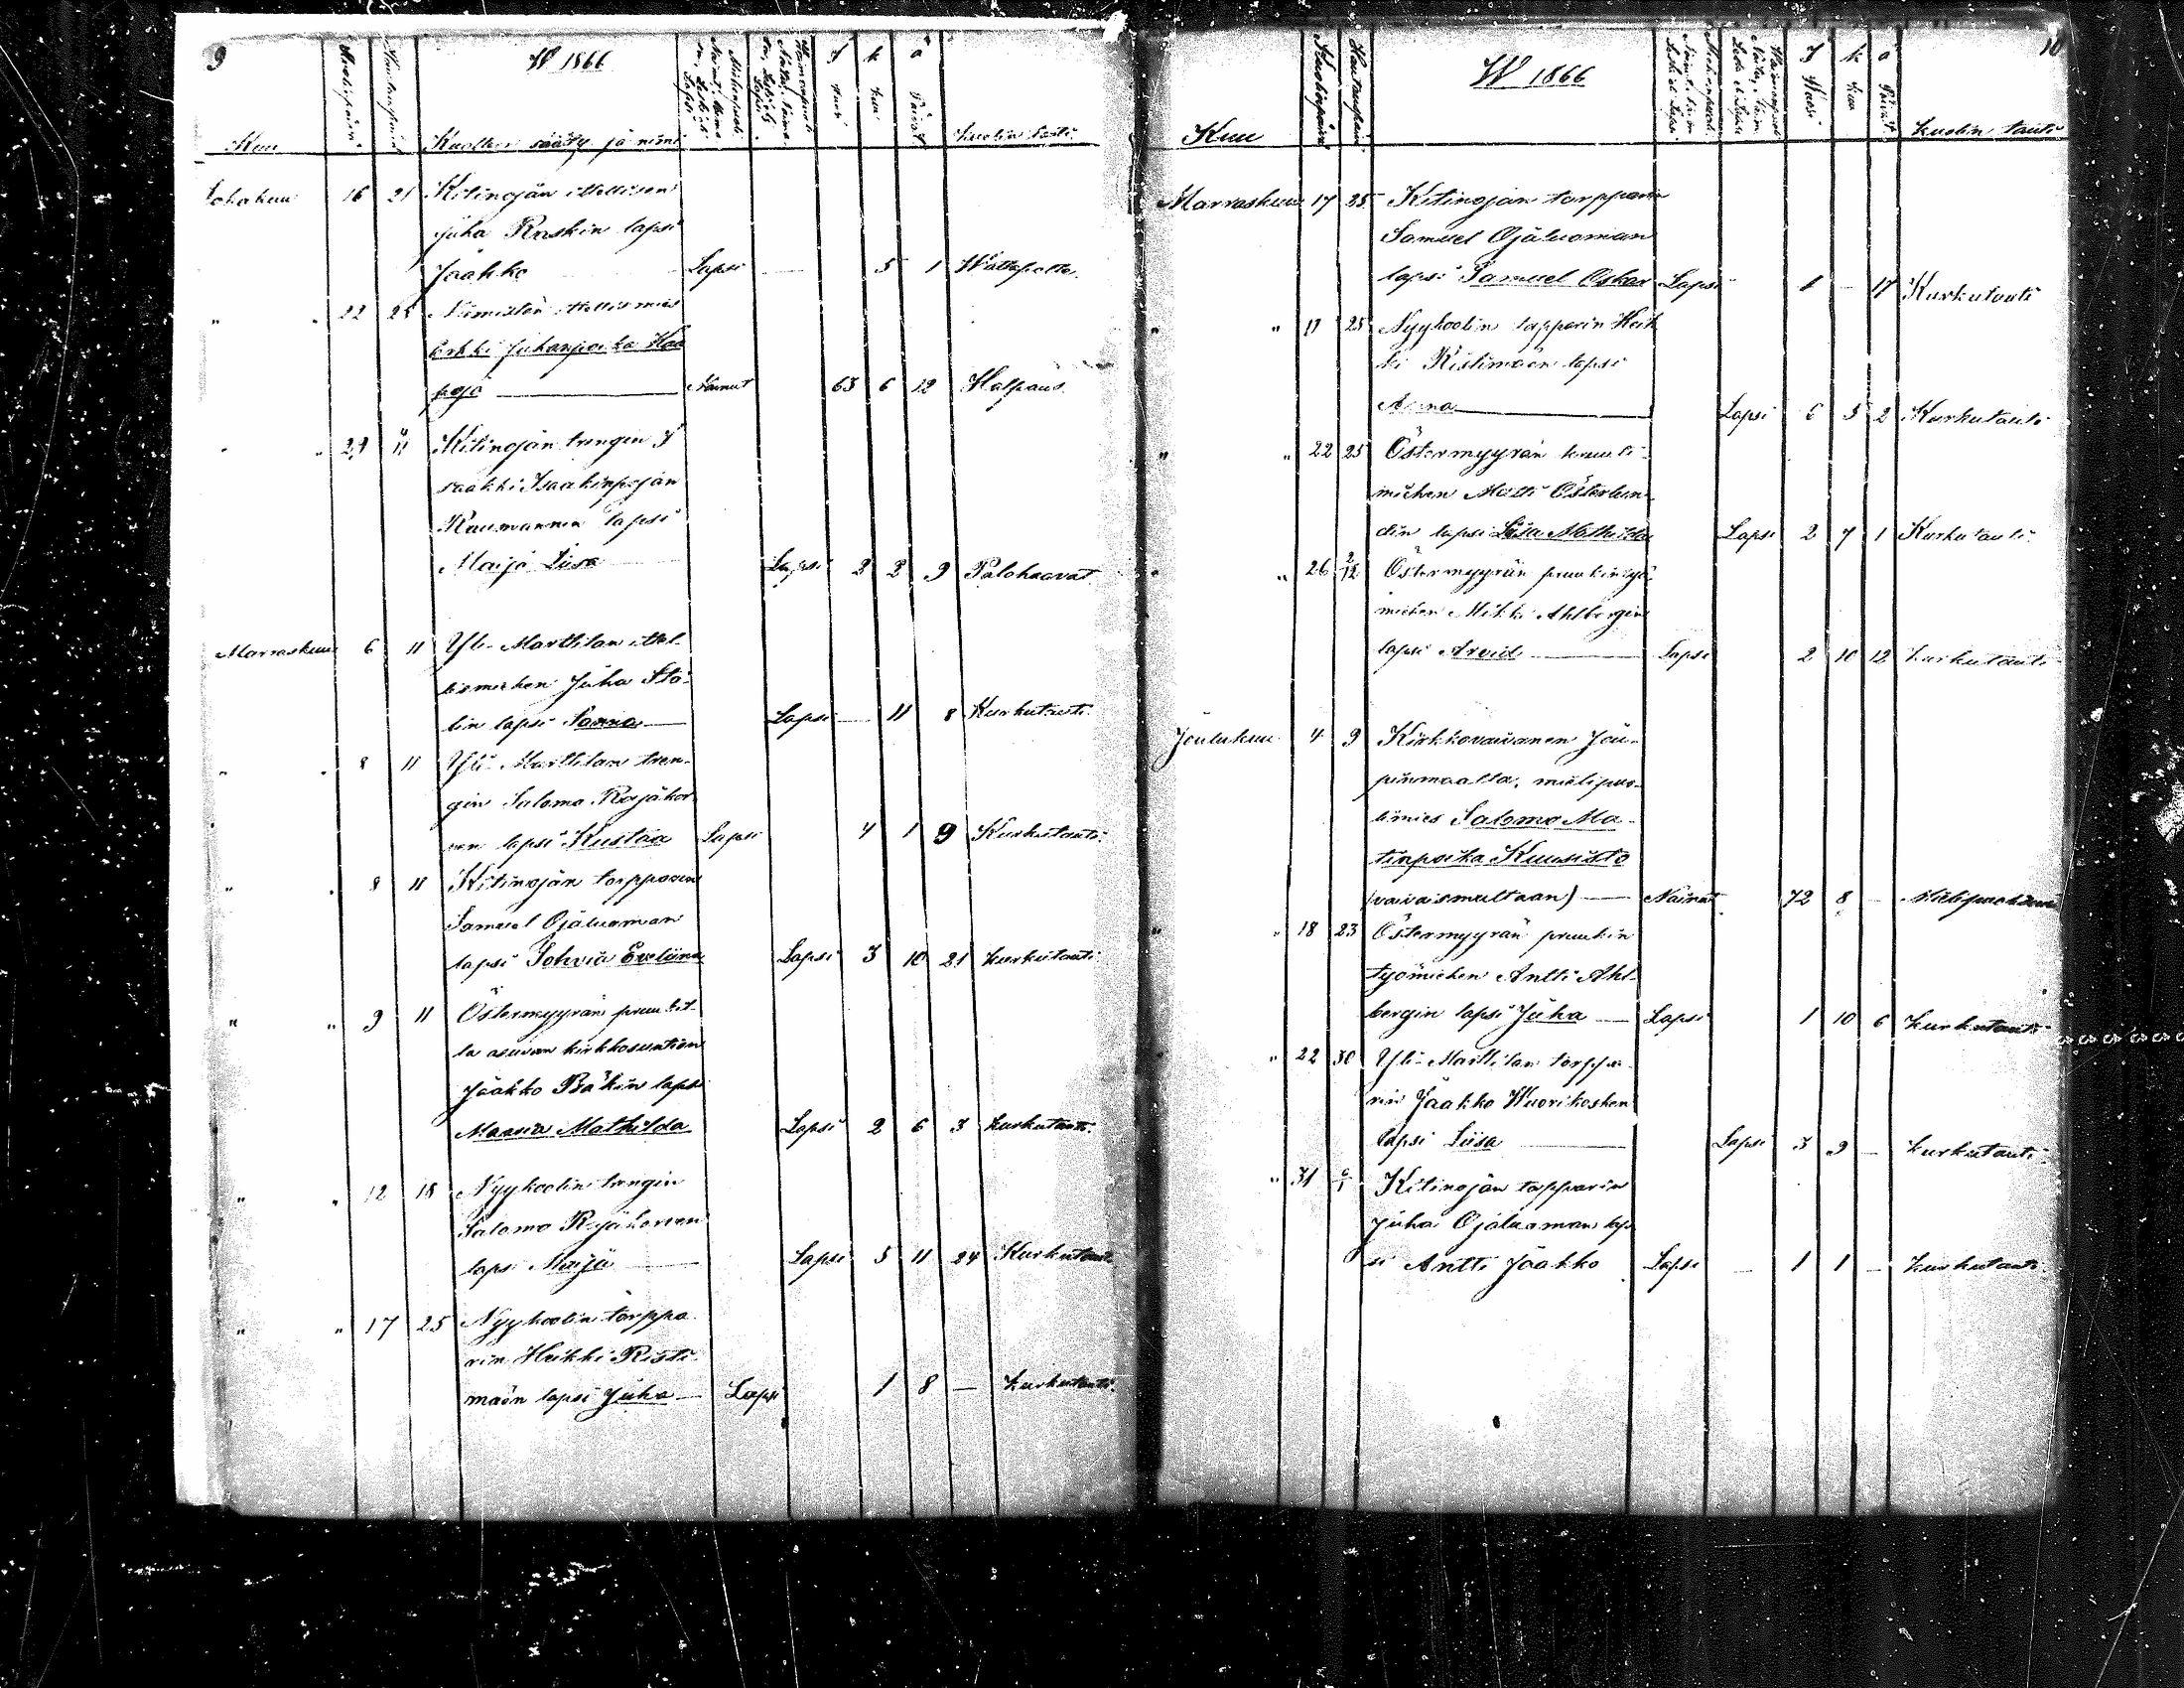 9
W 1866
Kuu Kuolinpäivä Hautauspäivä Kuolleen sääty ja nimi Kuolin tauti
Lokakuu 16 21 Kitinojan itellisen
Juha Raskin lapsi
Jaakko Lapsi — 5 1
" 22 28 Niemistön itellismies
Erkki Juhanpoika Haa
poja — Nainut 63 6 12 Halpaus
" 29 4/11 Kitinojan trengin I
saakki Isaakinpojan
Raumannin lapsi
Maija Liisa Lapsi 2 2 9 Palohaavat
Marraskuu 6 11 Yli-Marttilan itel-
lismiehen Juha Stå-
lin lapsi Sanna — Lapsi — 11 8 Kurkutauti
" 8 11 Yli-Marttilan tren-
gin Salomo Rajakor
ven lapsi Kustaa Lapsi 4 1 9 Kurkutauti
" 8 11 Kitinojan torpparin
Samuel Ojaluoman
lapsi Sohvia Eveliina Lapsi 3 10 21 kurkutauti
" " 9 11 Östermyyrän pruukil-
la asuvan kirkkosuntion
Jaakko Bäkin lapsi
Maaria Mathilda Lapsi 2 6 3 kurkutauti
" " 12 18 Nyykoolin trengin
Salomo Rajakorven
lapsi Maija Lapsi 5 11 24 Kurkutauti
" " 17 25 Nyykoolin torppa
rin Heikki Risti
mään lapsi Juha — Lapsi 1 8 — kurkutauti
10
W 1866
Kuu Kuolinpäivä Hautauspäivä Wuosi Kuu Päivät kuolin tauti
Marraskuu 17 25 Kitinojan torpparin
Samuel Ojaluoman
lapsi Samuel Oskar Lapsi 1 — 17 Kurkutauti
" " 17 25 Nyykoolin torpparin Heik
ki Ristimäen lapsi
Anna — Lapsi 6 5 2 Kurkutauti
" " 22 25 Östermyyrän
miehen Matti Österlun-
din lapsi Liisa Mathilda Lapsi 2 7 1 Kurkutauti
" " 26 2/12 Östermyyrän pruukin työ-
miehen Mikki Ahlbergin
lapsi Arvid — Lapsi 2 10 12 kurkutauti
Joulukuu 4 9 Kirkkovaivanen Jou-
pinmaalta, mielipuo-
limies Salomo Ma-
tinpoika Kuusisto
(vaivaismultaan) — Nainut 72 8 —
" " 18 23 Östermyyrän pruukin
työmiehen Antti Ahl-
bergin lapsi Juha — Lapsi 1 10 6 kurkutauti
" 22 30 Yli-Marttilan torppa-
rin Jaakko Wuorikosken
lapsi Liisa — Lapsi 3 9 — kurkutauti
" 31 6/1 Kitinojan torpparin
Juha Ojaluoman lap
si Antti Jaakko Lapsi — 1 1 — kurkutauti